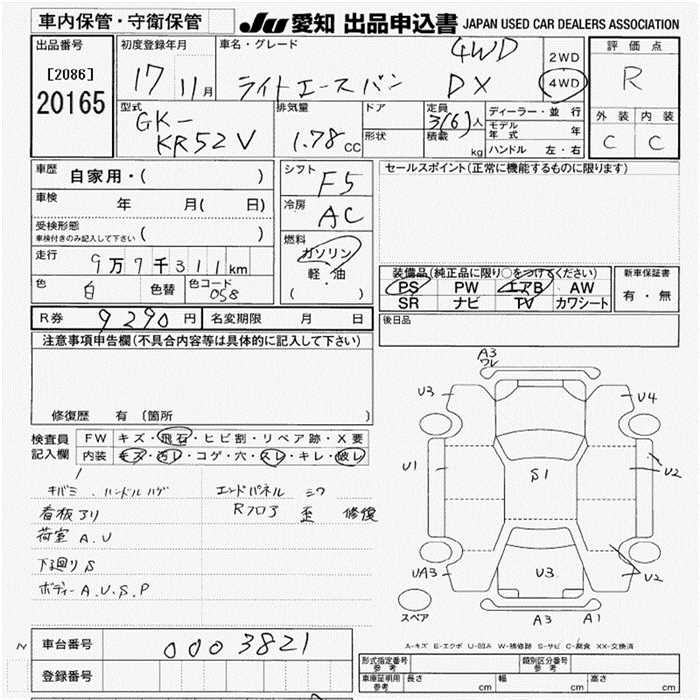 車内保管・守衛保管
JU 愛知 出品申込書 JAPAN USED CAR DEALERS ASSOCIATION
出品番号
[2086]
20165
初度登録年月
17 11月
車名・グレード
4WD
ライトエースバン DX
2WD
4WD
評価点
R
外装 内装
C C
型式
GK-
KR52V
排気量
1.78 CC
ドア
形状
定員
3(6)人
積載
kg
ディーラー・並行
モデル年式 年
ハンドル 左・右
車歴
自家用・( )
車検
年 月( 日)
受検形態
車検付きのみ記入して下さい ( )
走行
9万7千311km
色
白
色替
色コード
058
シフト
F5
冷房
AC
燃料
ガソリン
軽・油
( )
セールスポイント(正常に機能するものに限ります)
装備品(純正品に限り○をつけてください)
PS PW エアB AW
SR ナビ TV カワシート
新車保証書
有・無
後日品
R券 9290円
名変期限 月 日
注意事項申告欄(不具合内容等は具体的に記入して下さい)
修復歴 有 〔箇所 〕
検査員
記入欄
FW キズ・飛石・ヒビ割・リペア跡・X要
内装 キズ・汚レ・コゲ・穴・スレ・キレ・破レ
キバミ、ハンドルハゲ
看板アリ
荷室 A.U
下廻り S
ボディー A.U.S.P
エンドパネル シワ
Rフロア 歪 修復
A3
ワレ
U3
U4
U1
S1
U2
UA3
U3
U2
A3
A1
スペア
A-キズ E-エクボ U-凹み W-補修跡 S-サビ C-腐食 XX-交換済
車台番号
0003821
登録番号
型式指定番号
参考
類別区分番号
参考
車庫証明用
参考
長さ cm
幅 cm
高さ cm